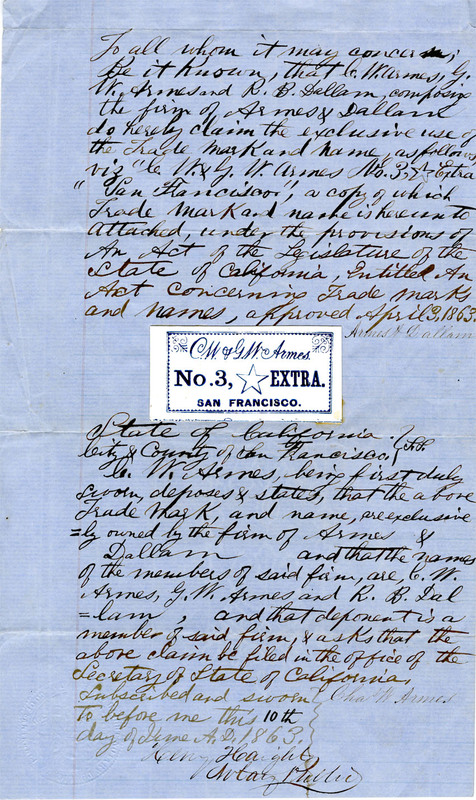 To all whom it may concern;
Be it known, that C. W. Armes, G.
W. Armes and R. B. Dallam, composing
the firm of Armes & Dallam
do hereby claim the exclusive use of
the Trade Mark and Name, as follows
viz "C. W. & G. W. Armes No. 3, ☆ Extra
"San Francisco", a copy of which
Trade Mark and name is hereunto
attached, under the provisions of
An Act of the Legislature of the
State of California, Entitled An
Act concerning Trade marks
and names, approved April 3, 1863.
Armes & Dallam
C.W. & G.W. Armes.
No. 3, ☆ EXTRA.
SAN FRANCISCO.
State of California.
City & County of San Francisco. } S.S.
C. W. Armes, being first duly
sworn, deposes & states, that the above
Trade Mark and name, are exclusive
=ly owned by the firm of Armes &
Dallam and that the names
of the members of said firm, are, C. W.
Armes, G. W. Armes and R. B. Dal
=lam, and that deponent is a
member of said firm, & asks that the
above claim be filed in the office of the
Secretary of State of California.
Subscribed and sworn
Chas. W. Armes
to before me this 10th
day of June A.D. 1863.
Henry Haight
Notary Public